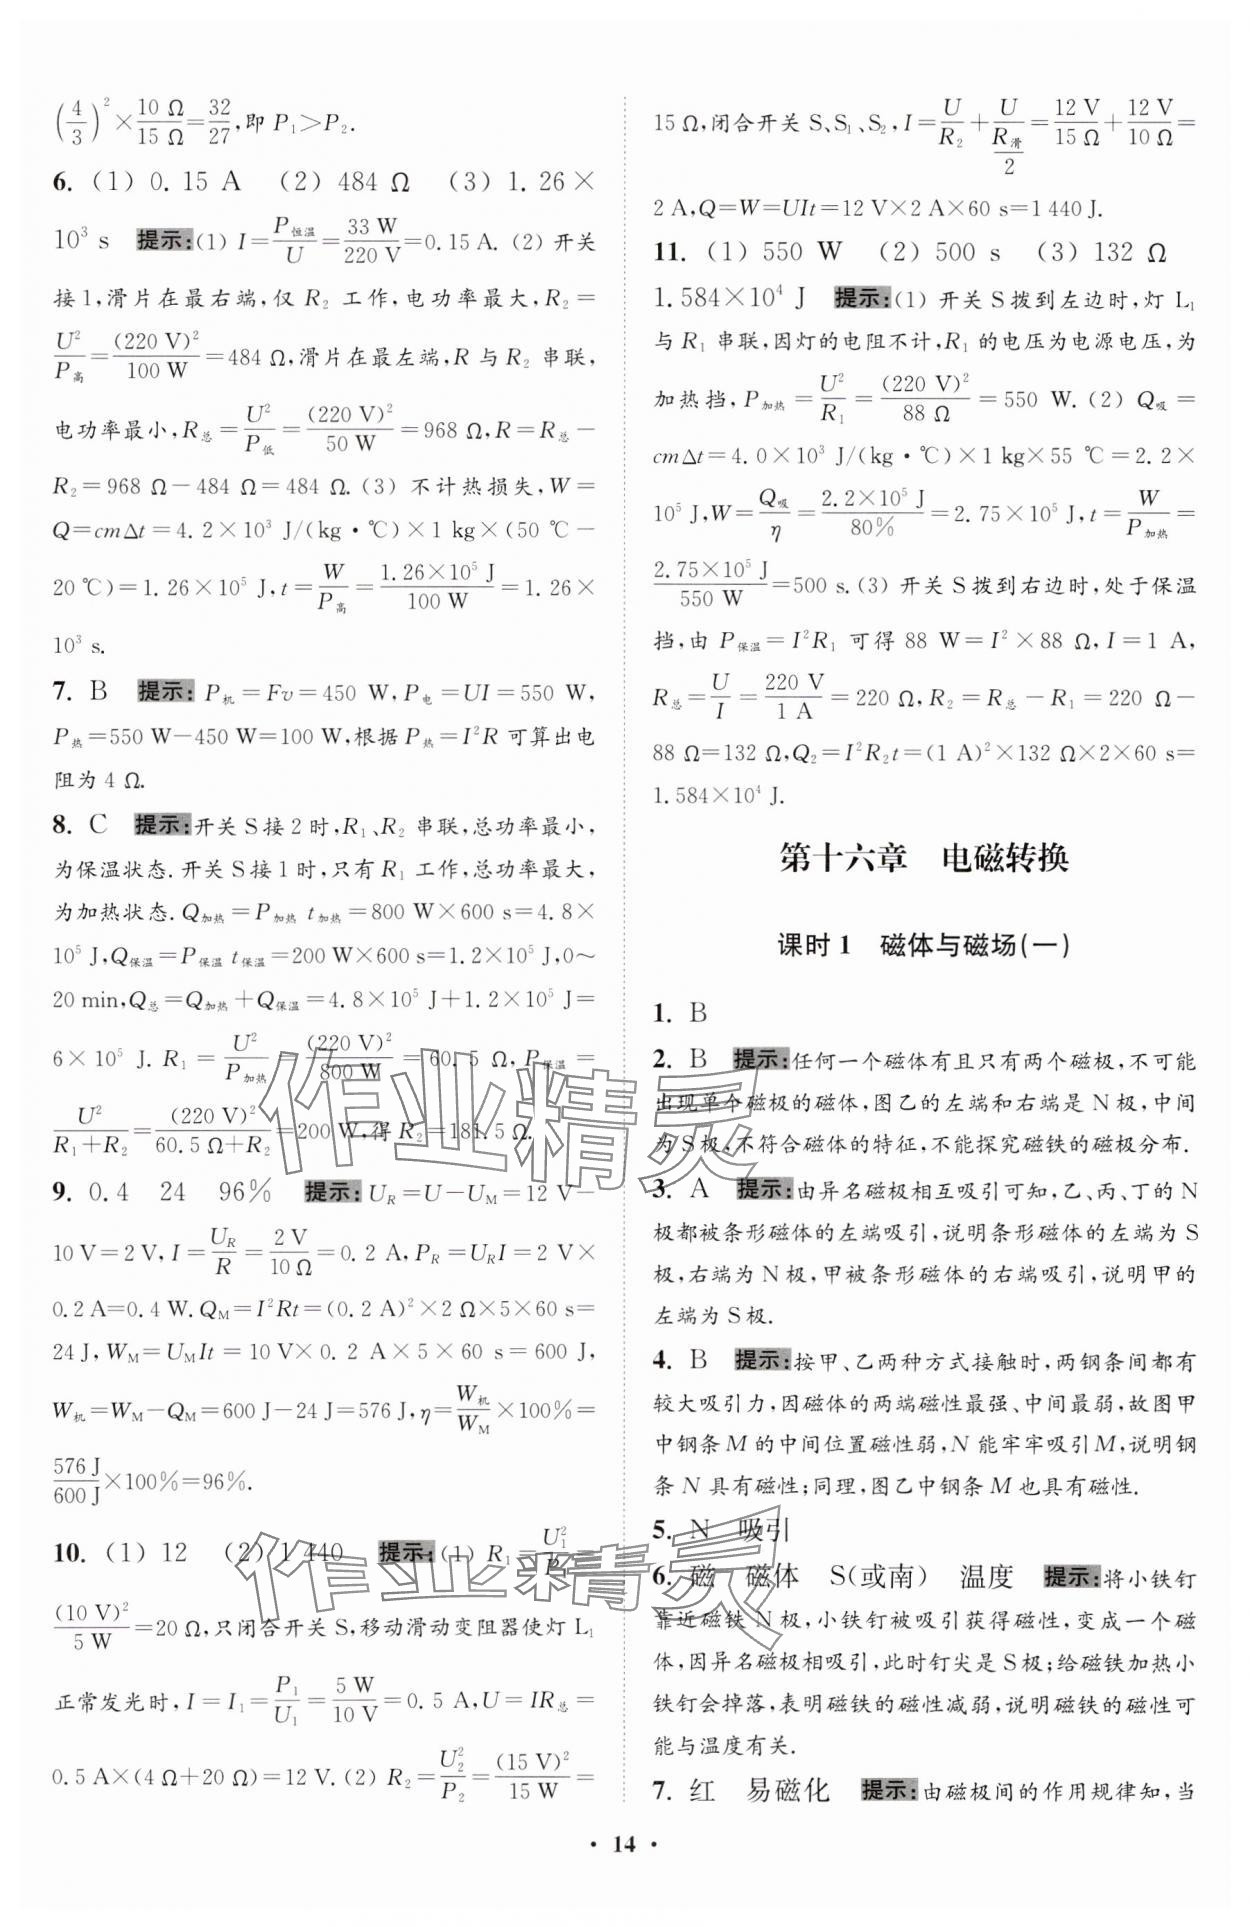 (4/3)²×10 Ω/15 Ω=32/27,即 P₁>P₂.
6. (1) 0.15 A (2) 484 Ω (3) 1.26×
10³ s 提示:(1) I=P恒温/U=33 W/220 V=0.15 A. (2) 开关
接1,滑片在最右端,仅 R₂ 工作,电功率最大,R₂=
U²/P高=(220 V)²/100 W=484 Ω,滑片在最左端,R 与 R₂ 串联,
电功率最小,R总=U²/P低=(220 V)²/50 W=968 Ω,R=R总−
R₂=968 Ω−484 Ω=484 Ω. (3) 不计热损失,W=
Q=cmΔt=4.2×10³ J/(kg·℃)×1 kg×(50 ℃−
20 ℃)=1.26×10⁵ J,t=W/P高=1.26×10⁵ J/100 W=1.26×
10³ s.
7. B 提示:P机=Fv=450 W,P电=UI=550 W,
P热=550 W−450 W=100 W,根据 P热=I²R 可算出电
阻为 4 Ω.
8. C 提示:开关 S 接 2 时,R₁、R₂ 串联,总功率最小,
为保温状态.开关 S 接 1 时,只有 R₁ 工作,总功率最大,
为加热状态.Q加热=P加热 t加热=800 W×600 s=4.8×
10⁵ J,Q保温=P保温 t保温=200 W×600 s=1.2×10⁵ J,0～
20 min,Q总=Q加热+Q保温=4.8×10⁵ J+1.2×10⁵ J=
6×10⁵ J. R₁=U²/P加热=(220 V)²/800 W=60.5 Ω,P保温=
U²/(R₁+R₂)=(220 V)²/(60.5 Ω+R₂)=200 W,得 R₂=181.5 Ω.
9. 0.4 24 96% 提示:U_R=U−U_M=12 V−
10 V=2 V,I=U_R/R=2 V/10 Ω=0.2 A,P_R=U_R I=2 V×
0.2 A=0.4 W.Q_M=I²Rt=(0.2 A)²×2 Ω×5×60 s=
24 J,W_M=U_M It=10 V×0.2 A×5×60 s=600 J,
W机=W_M−Q_M=600 J−24 J=576 J,η=W机/W_M×100%=
576 J/600 J×100%=96%.
10. (1) 12 (2) 1 440 提示:(1) R₁=U₁²/P₁=
(10 V)²/5 W=20 Ω,只闭合开关 S,移动滑动变阻器使灯 L₁
正常发光时,I=I₁=P₁/U₁=5 W/10 V=0.5 A,U=IR总=
0.5 A×(4 Ω+20 Ω)=12 V. (2) R₂=U₂²/P₂=(15 V)²/15 W=
15 Ω,闭合开关 S、S₁、S₂,I=U/R₂+U/(R滑/2)=12 V/15 Ω+12 V/10 Ω=
2 A,Q=W=UIt=12 V×2 A×60 s=1 440 J.
11. (1) 550 W (2) 500 s (3) 132 Ω
1.584×10⁴ J 提示:(1) 开关 S 拨到左边时,灯 L₁
与 R₁ 串联,因灯的电阻不计,R₁ 的电压为电源电压,为
加热挡,P加热=U²/R₁=(220 V)²/88 Ω=550 W. (2) Q吸=
cmΔt=4.0×10³ J/(kg·℃)×1 kg×55 ℃=2.2×
10⁵ J,W=Q吸/η=2.2×10⁵ J/80%=2.75×10⁵ J,t=W/P加热=
2.75×10⁵ J/550 W=500 s. (3) 开关 S 拨到右边时,处于保温
挡,由 P保温=I²R₁ 可得 88 W=I²×88 Ω,I=1 A,
R总=U/I=220 V/1 A=220 Ω,R₂=R总−R₁=220 Ω−
88 Ω=132 Ω,Q₂=I²R₂t=(1 A)²×132 Ω×2×60 s=
1.584×10⁴ J.
第十六章 电磁转换
课时 1 磁体与磁场(一)
1. B
2. B 提示:任何一个磁体有且只有两个磁极,不可能
出现单个磁极的磁体,图乙的左端和右端是 N 极,中间
为 S 极,不符合磁体的特征,不能探究磁铁的磁极分布.
3. A 提示:由异名磁极相互吸引可知,乙、丙、丁的 N
极都被条形磁体的左端吸引,说明条形磁体的左端为 S
极,右端为 N 极,甲被条形磁体的右端吸引,说明甲的
左端为 S 极.
4. B 提示:按甲、乙两种方式接触时,两钢条间都有
较大吸引力,因磁体的两端磁性最强、中间最弱,故图甲
中钢条 M 的中间位置磁性弱,N 能牢牢吸引 M,说明钢
条 N 具有磁性;同理,图乙中钢条 M 也具有磁性.
5. N 吸引
6. 磁 磁体 S(或南) 温度 提示:将小铁钉
靠近磁铁 N 极,小铁钉被吸引获得磁性,变成一个磁
体,因异名磁极相吸引,此时钉尖是 S 极;给磁铁加热小
铁钉会掉落,表明磁铁的磁性减弱,说明磁铁的磁性可
能与温度有关.
7. 红 易磁化 提示:由磁极间的作用规律知,当
· 14 ·
作业精灵
作业精灵